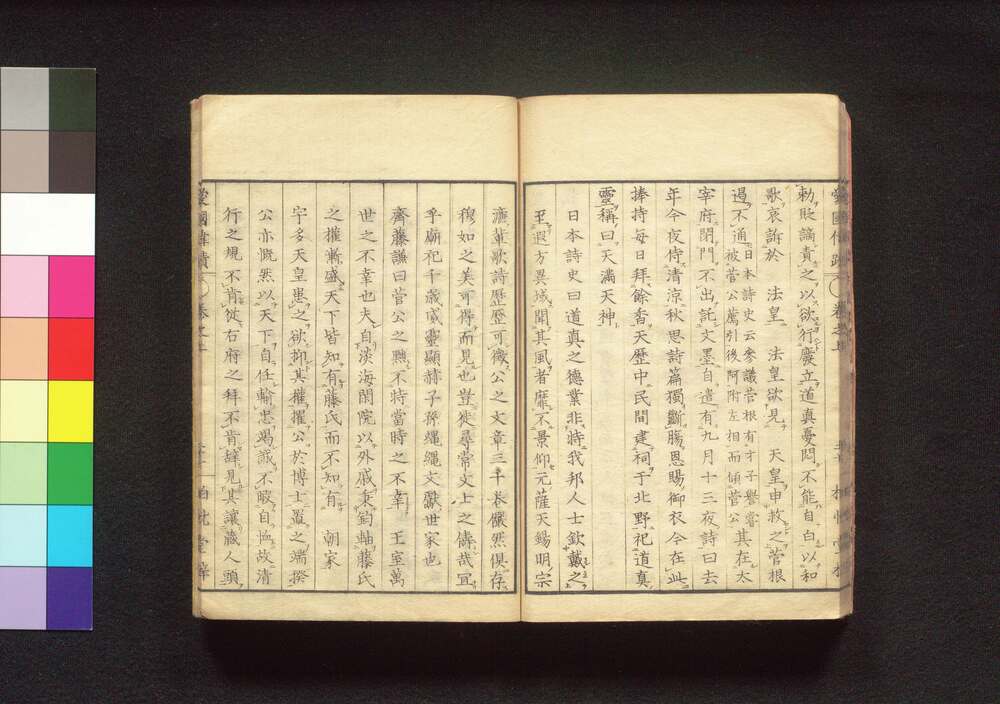 勅貶謫責之以欲行廢立道真憂悶不能自白以和
歌哀訴於　法皇　法皇欲見　天皇申救之菅根
遏不通日本詩史云參議菅根有才子譽嘗
被菅公薦引後阿附左相而傾菅公其在太
宰府閉門不出託文墨自遣有九月十三夜詩曰去
年今夜侍清涼秋思詩篇獨斷膓恩賜御衣今在此
捧持每日拜餘香天歷中民間建祠于北野祀道真
靈稱曰天滿天神
日本詩史曰道真之德業非特我邦人士欽戴之
至遐方異域聞其風者靡不景仰元薩天錫明宗
濂輩歌詩歷歷可徵公之文章三十卷儼然俱存
穆如之美可得而見也豈徒尋常文士之儔哉宜
乎廟祀千歲威靈顯赫子孫繩繩文獻世家也
齋藤謙曰菅公之黜不特當時之不幸　王室萬
世之不幸也夫自淡海閑院以外戚秉鈞軸藤氏
之權漸盛天下皆知有藤氏而不知有　朝家
宇多天皇患之欲抑其權擢公於博士置之端揆
公亦慨然以天下自任輸忠竭誠不暇自恤故清
行之規不肯從右府之拜不肯辭見其讓藏人頭